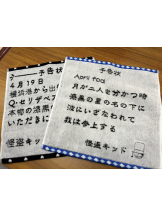 予告状
4月19日
横浜港から出
Q・セリザベス
本物の漆黒
いただきに
怪盗キッド
予告状
April fool
月が二人を分かつ時
漆黒の星の名の下に
波にいざなわれて
我は参上する
怪盗キッド